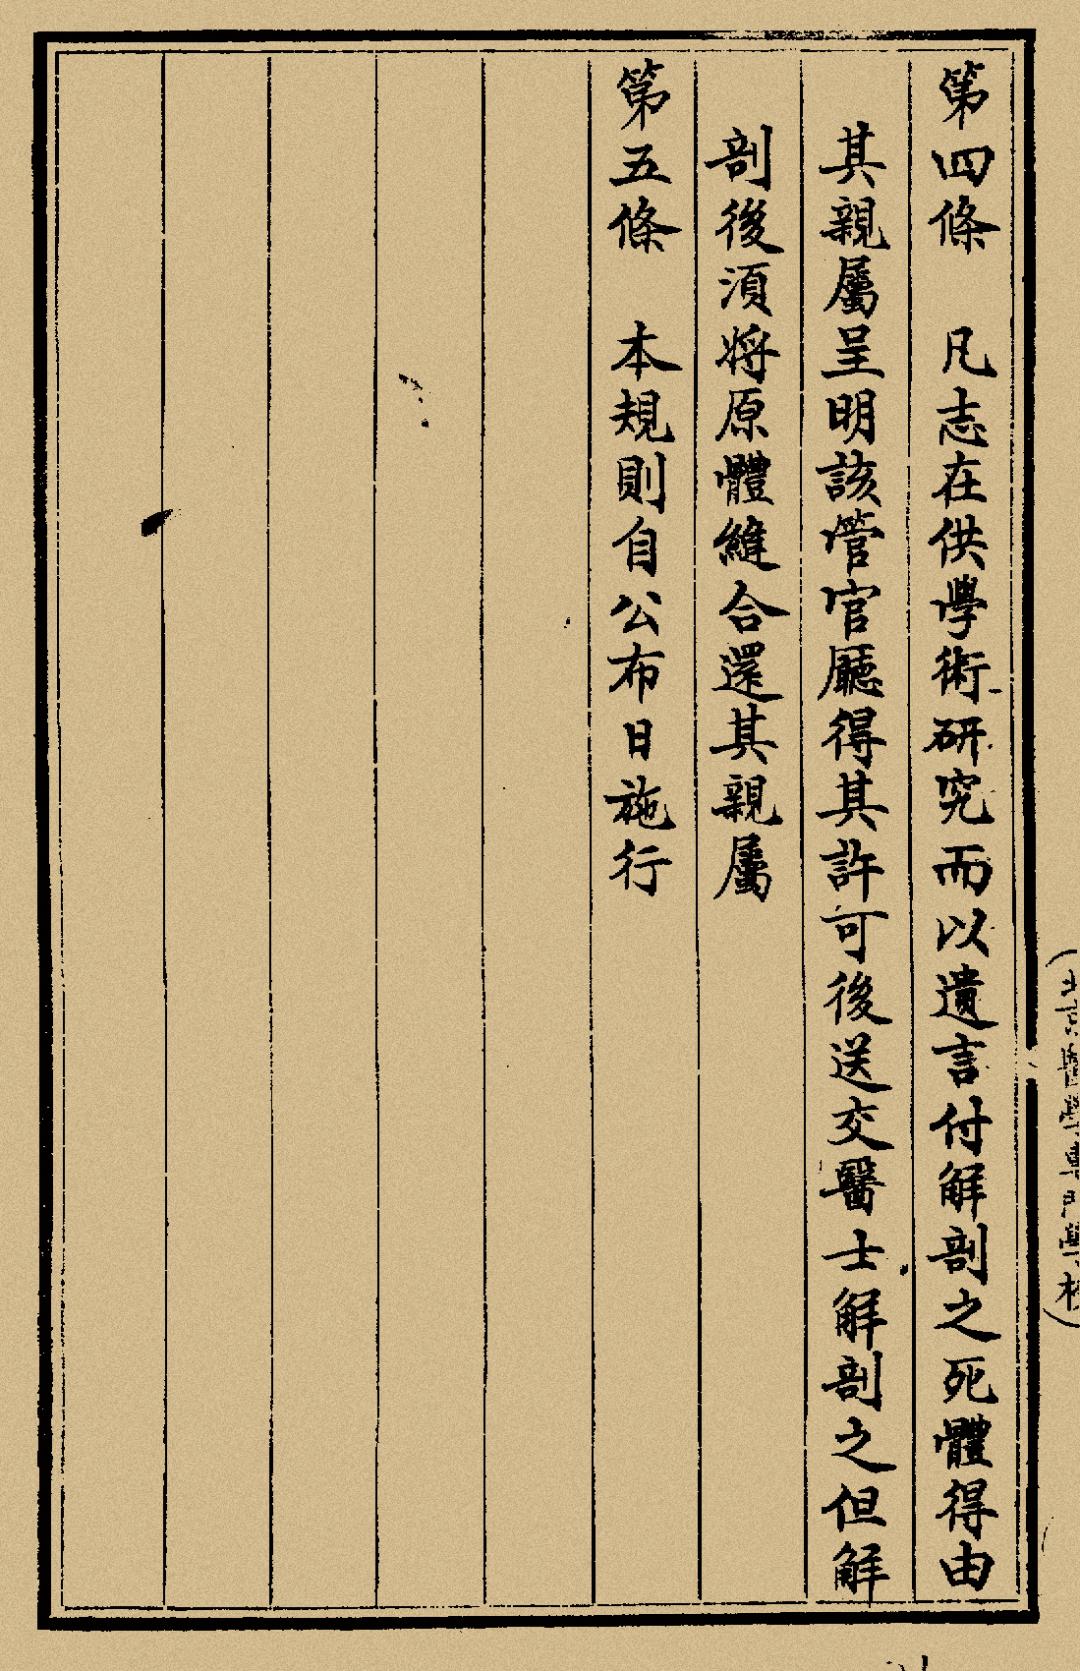 第四條　凡志在供學術研究而以遺言付解剖之死體得由
其親屬呈明該管官廳得其許可後送交醫士解剖之但解
剖後須將原體縫合還其親屬
第五條　本規則自公布日施行
（北京醫學專門學校）